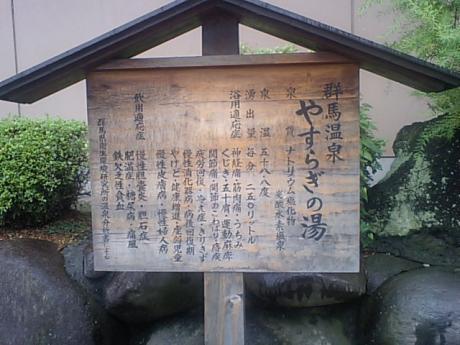 群馬温泉
やすらぎの湯
泉質 ナトリウム塩化物
炭酸水素塩温泉
泉温 五十八・八度
湧出量 毎分 二五〇リットル
浴用適応症 神経痛・筋肉痛・うちみ
くじき・五十肩・運動麻痺
関節痛・関節のこわばり・痔疾
疲労回復・冷え症・きりきず
慢性消化器病・病後回復期
やけど・健康増進・虚弱児童
慢性皮膚病・慢性婦人病
飲用適応症
慢性胆嚢炎・胆石症
肥満症・糖尿病・痛風
鉄欠乏性貧血